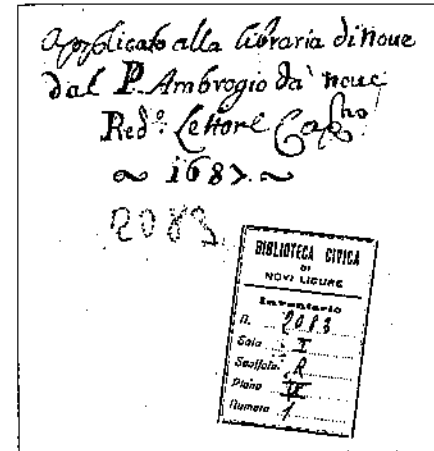 Applicato alla libraria di noue
dal P. Ambrogio da' noue
Red.º Lettore Capno.
~ 1687. ~
2083
BIBLIOTECA CIVICA
DI
NOVI LIGURE
Inventario
N. 2083
Sala I
Scaffale R
Piano IV
Numero 1